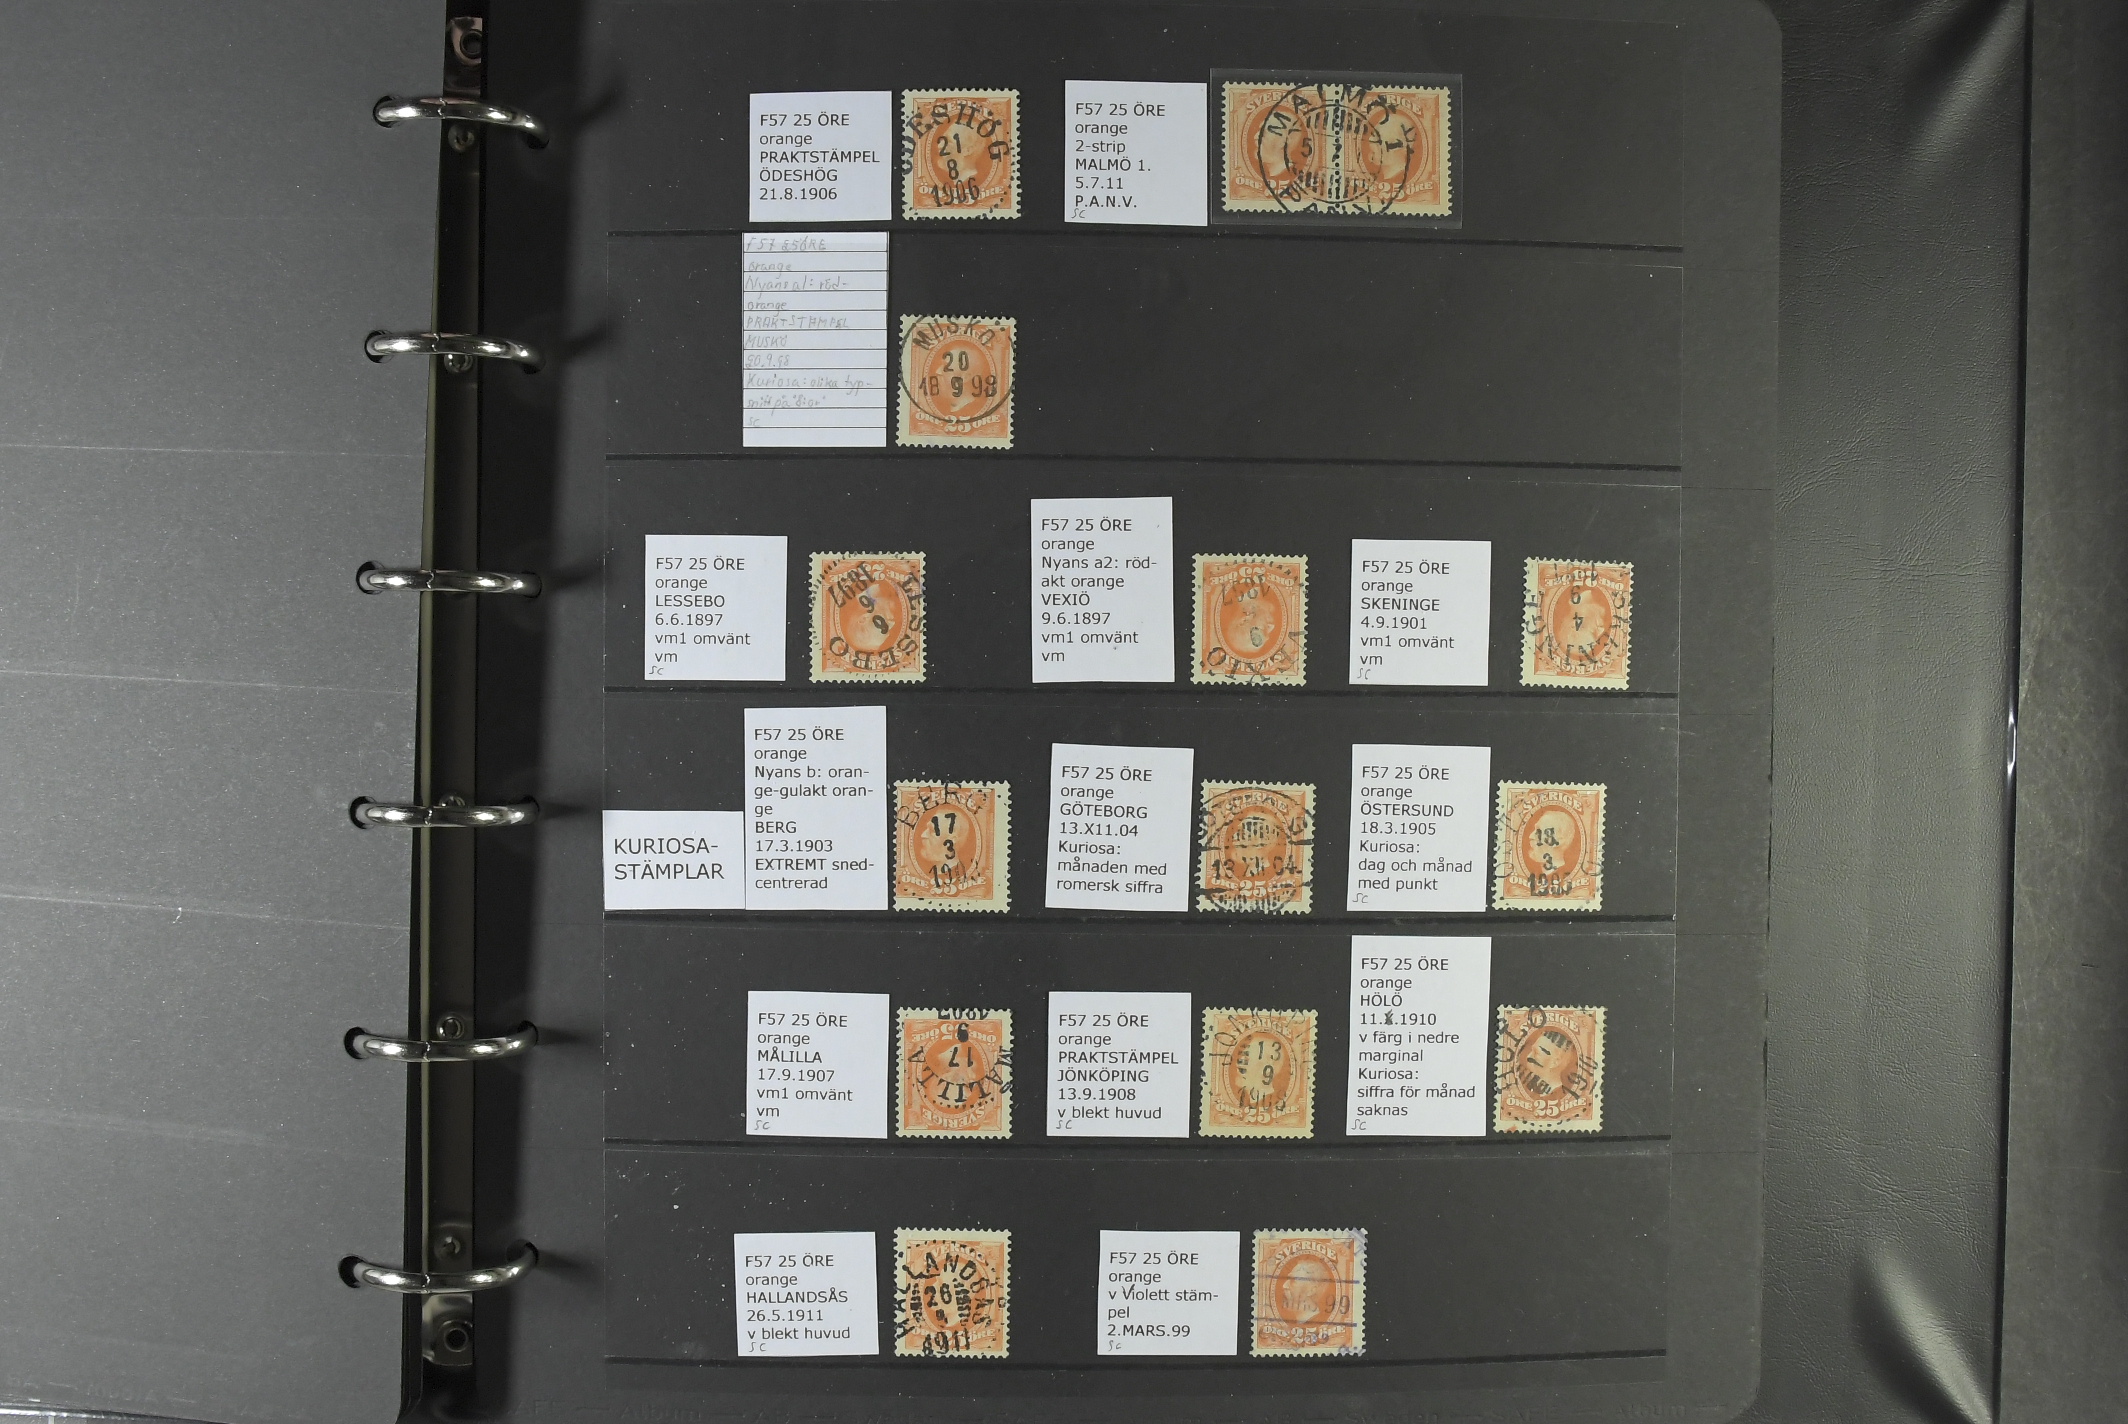 F57 25 ÖRE
orange
PRAKTSTÄMPEL
ÖDESHÖG
21.8.1906
ÖDESHÖG
21
8
1906
ÖRE 25 ÖRE
F57 25 ÖRE
orange
2-strip
MALMÖ 1.
5.7.11
P.A.N.V.
SC
SVERIGE
MALMÖ 1
5 7
P.A.N.V.
ÖRE 25
25 ÖRE
F57 25 ÖRE
orange
Nyans a1: röd-
orange
PRAKTSTÄMPEL
MUSKÖ
20.9.98
Kuriosa: olika typ-
snitt på
SC
MUSKÖ
20
18 9 98
ÖRE 25 ÖRE
F57 25 ÖRE
orange
LESSEBO
6.6.1897
vm1 omvänt
vm
SC
LESSEBO
6
6
1897
F57 25 ÖRE
orange
Nyans a2: röd-
akt orange
VEXIÖ
9.6.1897
vm1 omvänt
vm
VEXIÖ
9
1897
F57 25 ÖRE
orange
SKENINGE
4.9.1901
vm1 omvänt
vm
SC
SKENINGE
4
9
KURIOSA-
STÄMPLAR
F57 25 ÖRE
orange
Nyans b: oran-
ge-gulakt oran-
ge
BERG
17.3.1903
EXTREMT sned-
centrerad
BERG
17
3
1903
ÖRE 25 ÖRE
F57 25 ÖRE
orange
GÖTEBORG
13.X11.04
Kuriosa:
månaden med
romersk siffra
GÖTEBORG
13 XII 04
25
F57 25 ÖRE
orange
ÖSTERSUND
18.3.1905
Kuriosa:
dag och månad
med punkt
SC
SVERIGE
18.
3.
1905
F57 25 ÖRE
orange
MÅLILLA
17.9.1907
vm1 omvänt
vm
SC
MÅLILLA
17
9
1907
SVERIGE
F57 25 ÖRE
orange
PRAKTSTÄMPEL
JÖNKÖPING
13.9.1908
v blekt huvud
SC
13
9
1908
F57 25 ÖRE
orange
HÖLÖ
11.X.1910
v färg i nedre
marginal
Kuriosa:
siffra för månad
saknas
SC
HÖLÖ
11
1910
ÖRE 25 ÖRE
F57 25 ÖRE
orange
HALLANDSÅS
26.5.1911
v blekt huvud
SC
HALLANDSÅS
26
1911
F57 25 ÖRE
orange
v Violett stäm-
pel
2.MARS.99
SC
SVERIGE
MRS 99
ÖRE 25 ÖRE